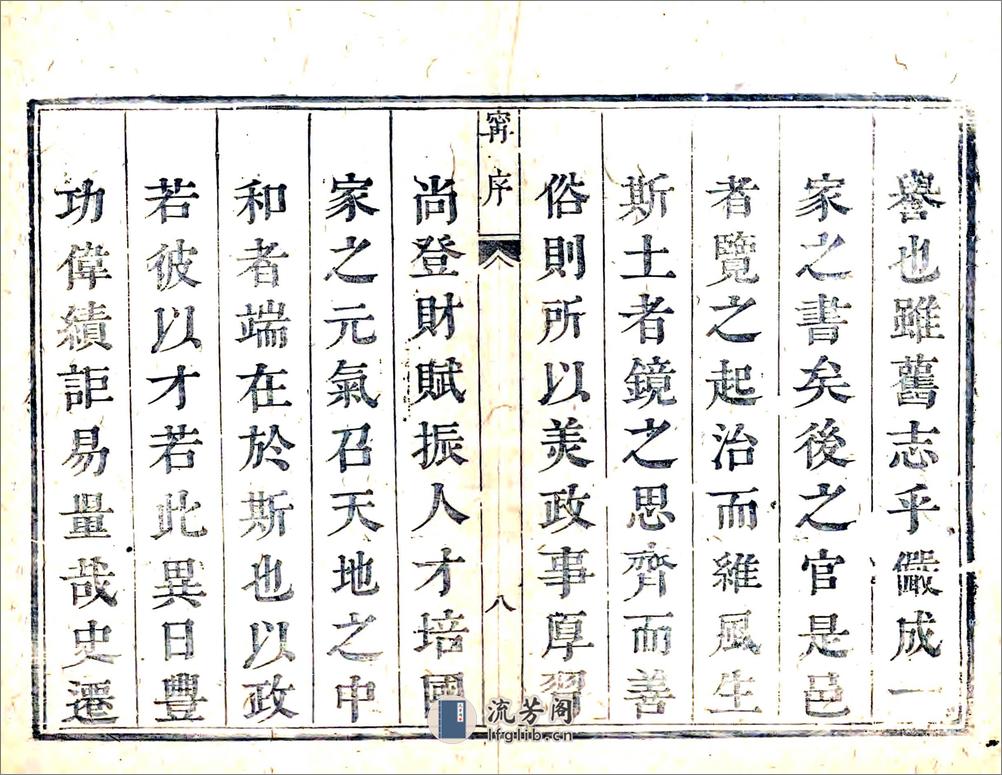 譽也雖舊志乎儼成一
家之書矣後之官是邑
者覽之起治而維風生
斯土者鏡之思齊而善
俗則所以美政事厚習
甯序
八
尚登財賦振人才培國
家之元氣召天地之中
和者端在於斯也以政
若彼以才若此異日豐
功偉績詎易量哉史遷
流芳阁
lfglib.cn